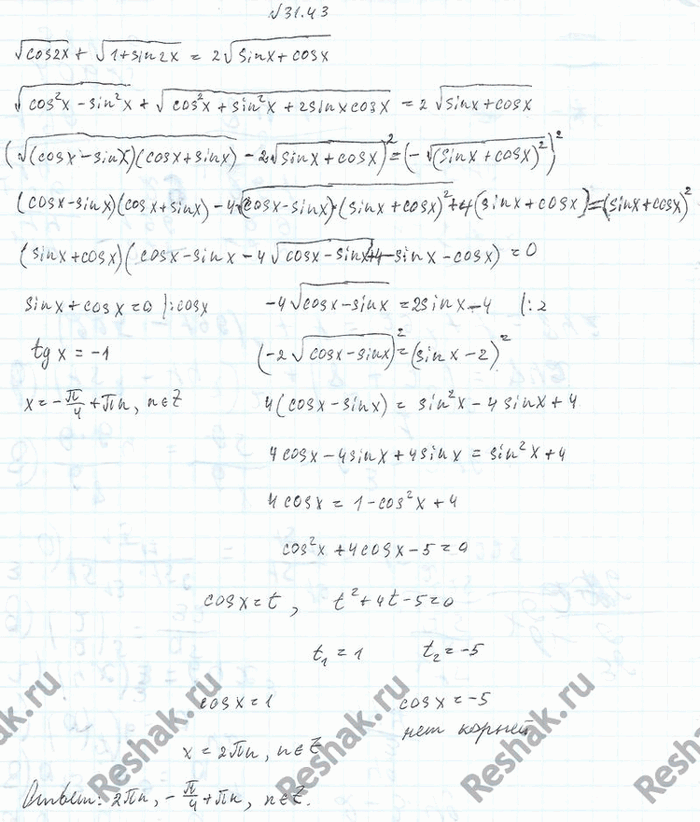 √31.43
√cos2x + √1+sin2x = 2√sinx+cosx
√cos²x-sin²x + √cos²x+sin²x+2sinxcosx = 2√sinx+cosx
(√(cosx-sinx)(cosx+sinx) - 2√sinx+cosx)² = (-√(sinx+cosx)²)²
(cosx-sinx)(cosx+sinx) - 4√(cosx-sinx)·(sinx+cosx)² + 4(sinx+cosx) = (sinx+cosx)²
(sinx+cosx)(cosx-sinx-4√cosx-sinx+4-sinx-cosx) = 0
sinx+cosx=0 |:cosx
tgx = -1
x = -π/4 + πn, n∈Z
-4√cosx-sinx = 2sinx-4 |:2
(-2√cosx-sinx)² = (sinx-2)²
4(cosx-sinx) = sin²x-4sinx+4
4cosx-4sinx+4sinx = sin²x+4
4cosx = 1-cos²x+4
cos²x+4cosx-5=0
cosx=t, t²+4t-5=0
t₁=1 t₂=-5
cosx=1 cosx=-5
нет корней
x=2πn, n∈Z
Ответ: 2πn, -π/4+πn, n∈Z.
Reshak.ru
Reshak.ru
Reshak.ru
Reshak.ru
Reshak.ru